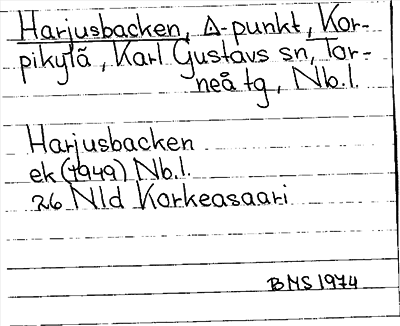 Harjusbacken, Δ-punkt, Kor-
pikylä, Karl Gustavs sn, Tor-
neå tg, Nb.l.
Harjusbacken
ek (1949) Nb.l.
26 Nld Korkeasaari
BMS 1974